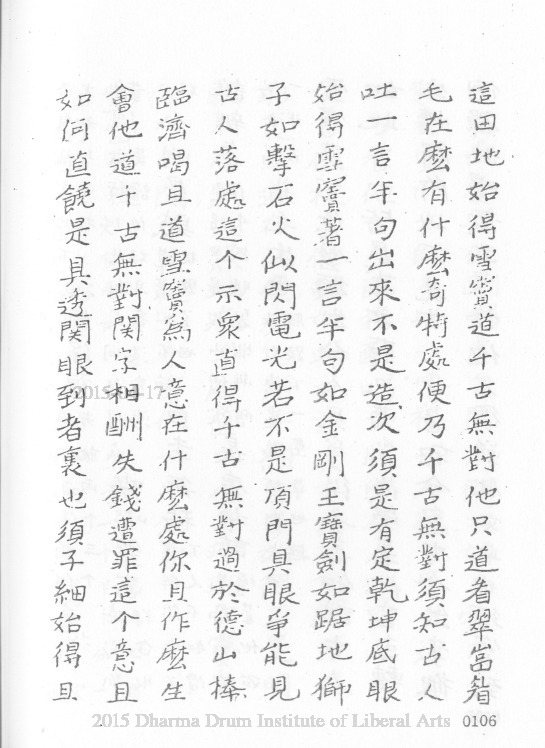 這田地始得雪竇道千古無對他只道者翠嵓眉
毛在麽有什麽奇特處便乃千古無對須知古人
吐一言半句出來不是造次須是有定乾坤底眼
始得雪竇著一言半句如金剛王寶劍如踞地獅
子如擊石火似閃電光若不是頂門具眼爭能見
古人落處這个示衆直得千古無對過於德山棒
臨濟喝且道雪竇為人意在什麽處你且作麽生
會他道千古無對関字相酬失錢遭罪這个意且
如何直饒是具透関眼到者裏也須子細始得且
2015 Dharma Drum Institute of Liberal Arts 0106